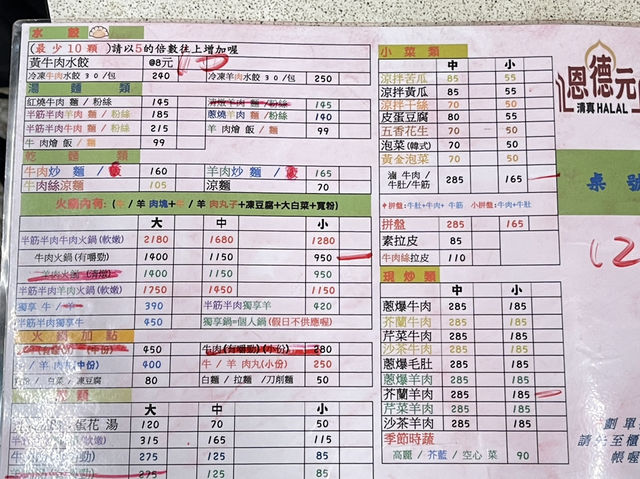 水 餃
(最少10顆)請以5的倍數往上增加喔
黃牛肉水餃 @8元
冷凍牛肉水餃 30/包 240 冷凍羊肉水餃 30/包 250
湯 麵 類
紅燒牛肉 麵 / 粉絲 145 清燉羊肉 麵 / 粉絲 145
半筋半肉羊肉 麵 / 粉絲 185 蔥燒羊肉 麵 / 粉絲 140
半筋半肉牛肉 麵 / 粉絲 215 羊 肉燴 飯 / 麵 99
牛 肉燴 飯 / 麵 99
乾 麵 類
牛肉炒 麵 / 160 羊肉炒 麵 / 165
牛肉絲涼麵 105 涼麵 70
火鍋內有:(牛 / 羊 肉塊+牛 / 羊 肉丸子+凍豆腐+大白菜+寬粉)
大 中 小
半筋半肉牛肉火鍋(軟嫩) 2180 1680 1280
牛肉火鍋(有嚼勁) 1400 1150 950
羊肉火鍋 (清燉) 1400 1150 950
半筋半肉羊肉火鍋(軟嫩) 1750 1450 1150
獨享 牛 / 羊 390 半筋半肉獨享羊 420
半筋半肉獨享牛 450 獨享鍋=個人鍋(假日不供應喔)
火 鍋 加 點
(中份) 450 牛肉(有嚼勁)(小份) 280
牛 / 羊 肉丸(中份) 400 牛 / 羊 肉丸(小份) 250
/ 白菜 / 凍豆腐 80 白麵 / 拉麵 /刀削麵 50
類
大 中 小
蛋花 湯 120 70 50
(軟嫩) 315 165 115
275 125 85
275 125 85
小 菜 類
中 小
涼拌苦瓜 85 55
涼拌黃瓜 85 55
涼拌干絲 70 50
皮蛋豆腐 80 55
五香花生 70 50
泡菜(韓式) 70 50
黃金泡菜 70 50
滷 牛肉 /
牛肚/牛筋 285 165
中拼盤:牛肚+牛肉+ 牛筋 小拼盤:牛肉+牛肚
拼盤 285 165
素拉皮 85
牛肉絲拉皮 110
現 炒 類
中 小
蔥爆牛肉 285 185
芥蘭牛肉 285 185
芹菜牛肉 285 185
沙茶牛肉 285 185
蔥爆毛肚 285 185
蔥爆羊肉 285 185
芥蘭羊肉 285 185
芹菜羊肉 285 185
沙茶羊肉 285 185
季節時蔬
高麗 / 芥藍 / 空心 菜 90
恩德元
清真HALAL
桌 號
劃 單
請先至櫃
帳喔